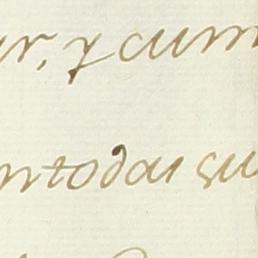 ar, y cum
ntodas su